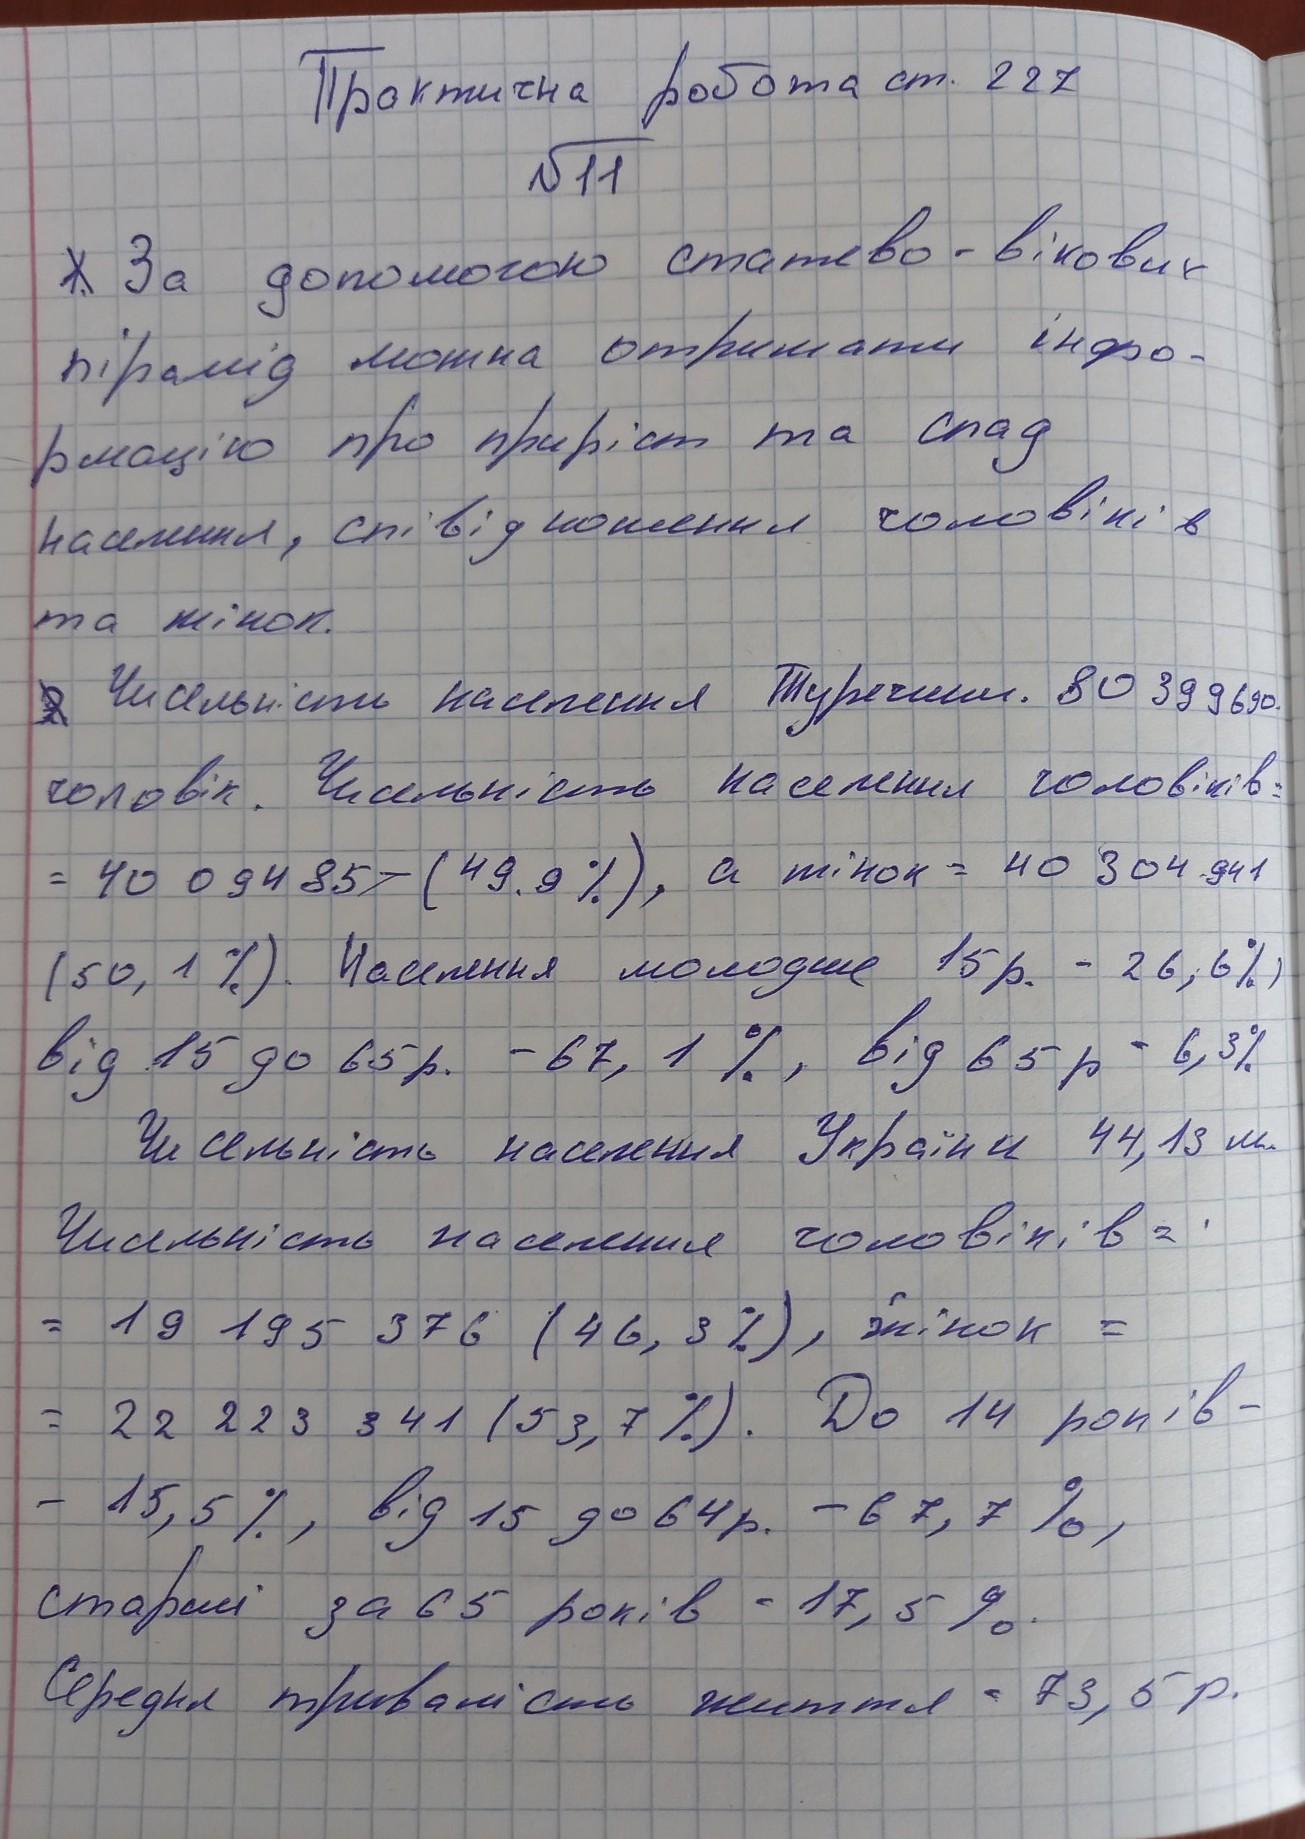 Практична робота ст. 227
№11
За допомогою статево-вікових
пірамід можна отримати інфо-
рмацію про приріст та спад
населення, співідношення чоловіків
та жінок.
Чисельність населення Туреччини. 80 399 690.
чоловік. Чисельність населення чоловіків=
= 40 094 857 (49.9%), а жінок = 40 304 941
(50,1%). Населення молодше 15р. - 26,6%,
від 15 до 65р. - 67,1%, від 65р - 6,3%
Чисельність населення України 44,13 м.
Чисельність населення чоловіків =
= 19 195 376 (46,3%), жінок =
= 22 223 341 (53,7%). До 14 років -
- 15,5%, від 15 до 64р. - 67,7%,
старші за 65 років - 17,5%.
Середня тривалість життя - 73,5р.